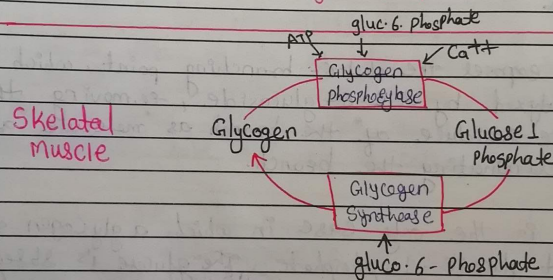 gluc. 6. phosphate
ATP
Ca++
Glycogen
phosphoeylase
Skelatal
muscle
Glycogen
Glucose 1
phosphate
Glycogen
Synthease
gluco. 6 - phosphate